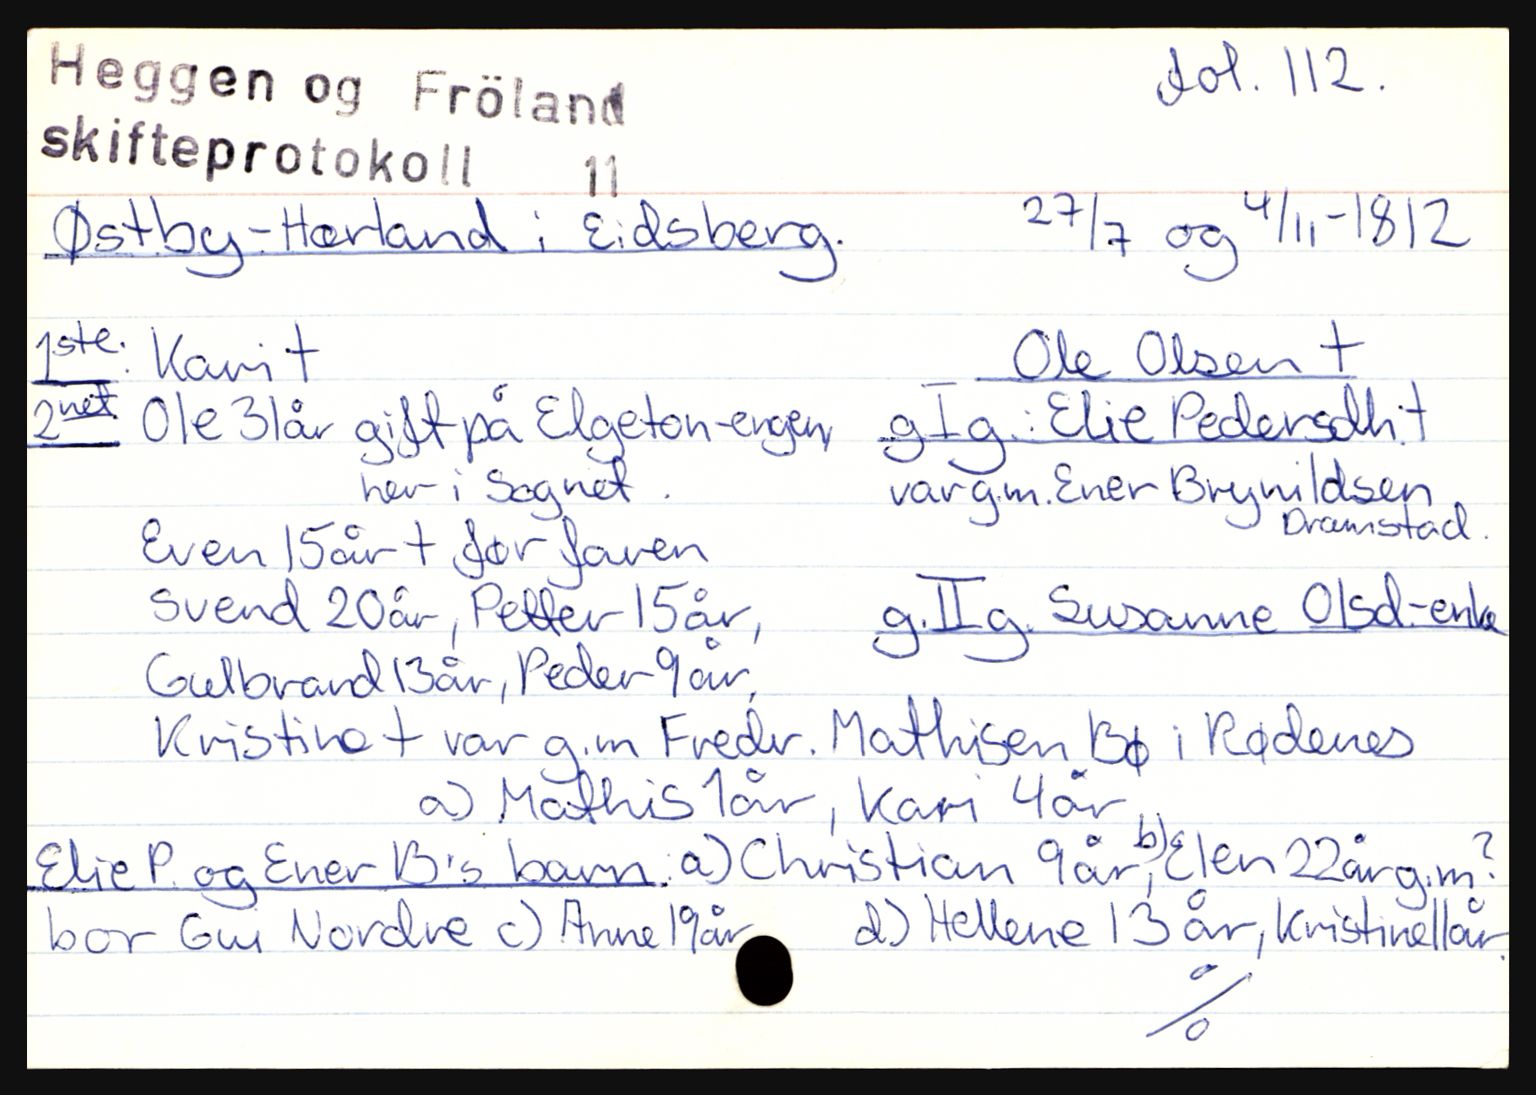 Heggen og Fröland
skifteprotokoll 11
fol. 112.
Østby-Hærland i Eidsberg. 27/7 og 4/11-1812
1ste: Kari † Ole Olsen †
2net Ole 31år gift på Elgeton-engen g I g.: Elie Pedersdh. †
her i Sognet. var g.m. Ener Brynildsen
Dramstad.
Even 15år † før faren
Svend 20år, Petter 15år, g. II g. Susanne Olsd.-enke
Gulbrand 13år, Peder 9år,
Kristine † var g.m Fredr. Mathisen Bø i Rødenes
a) Mathis 1år, Kari 4år,
Elie P. og Ener B's barn: a) Christian 9år, b) Elen 22år g.m?
bor Gui Nordre c) Anne 19år d) Hellene 13 år, Kristine 11år.
%